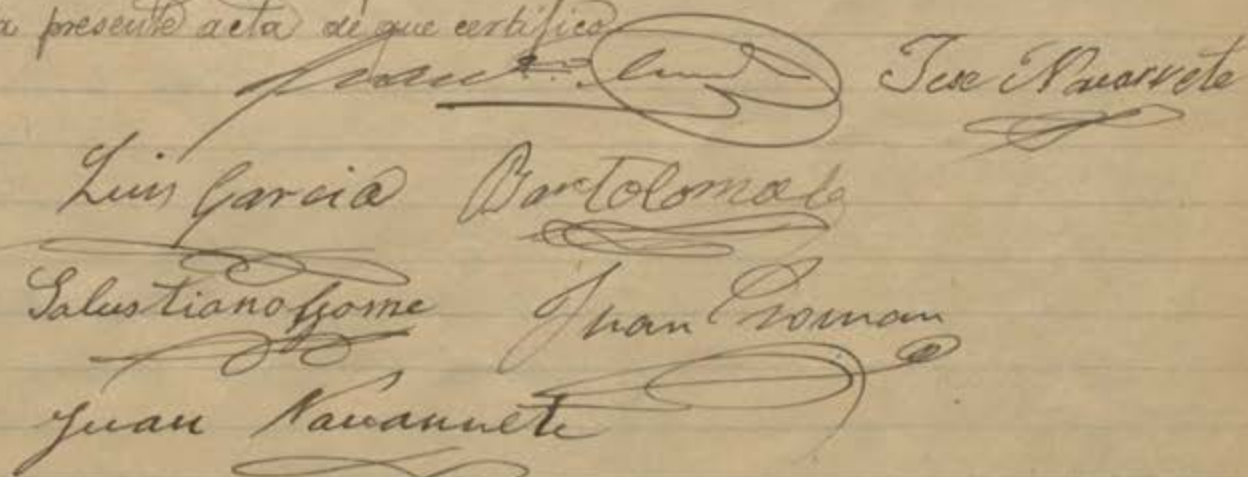 a presente acta de que certifico
Jose Navarrete
Luis Garcia Bartolomé
Salustiano Gome Juan Roman
Juan Navarrete